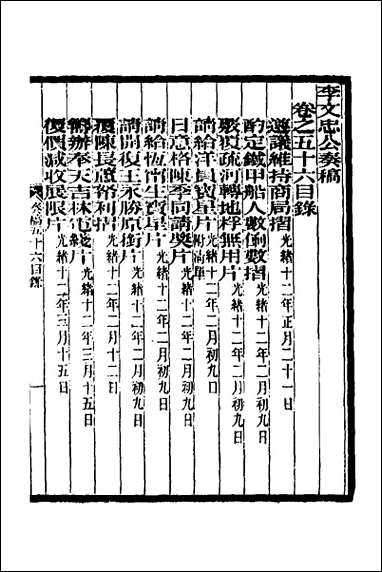 李文忠公奏稿
卷之五十六目錄
遵議維持商局摺光緒十二年正月二十一日
酌定鐵甲船人數餉數摺光緒十二年二月初九日
驗收疏河轉地桴無用片光緒十二年二月初九日
請給洋員寶星片附清單光緒十二年二月初九日
日意格陳季同請獎片光緒十二年二月初九日
請給恆甯生寶星片光緒十二年二月初九日
請開復王永勝原銜片光緒十二年二月初九日
覆陳長蘆 利摺光緒十二年二月十二日
辦奉天吉林電綫片光緒十二年三月十五日
復價減收展限片光緒十二年三月十五日
奏稿五十六目錄